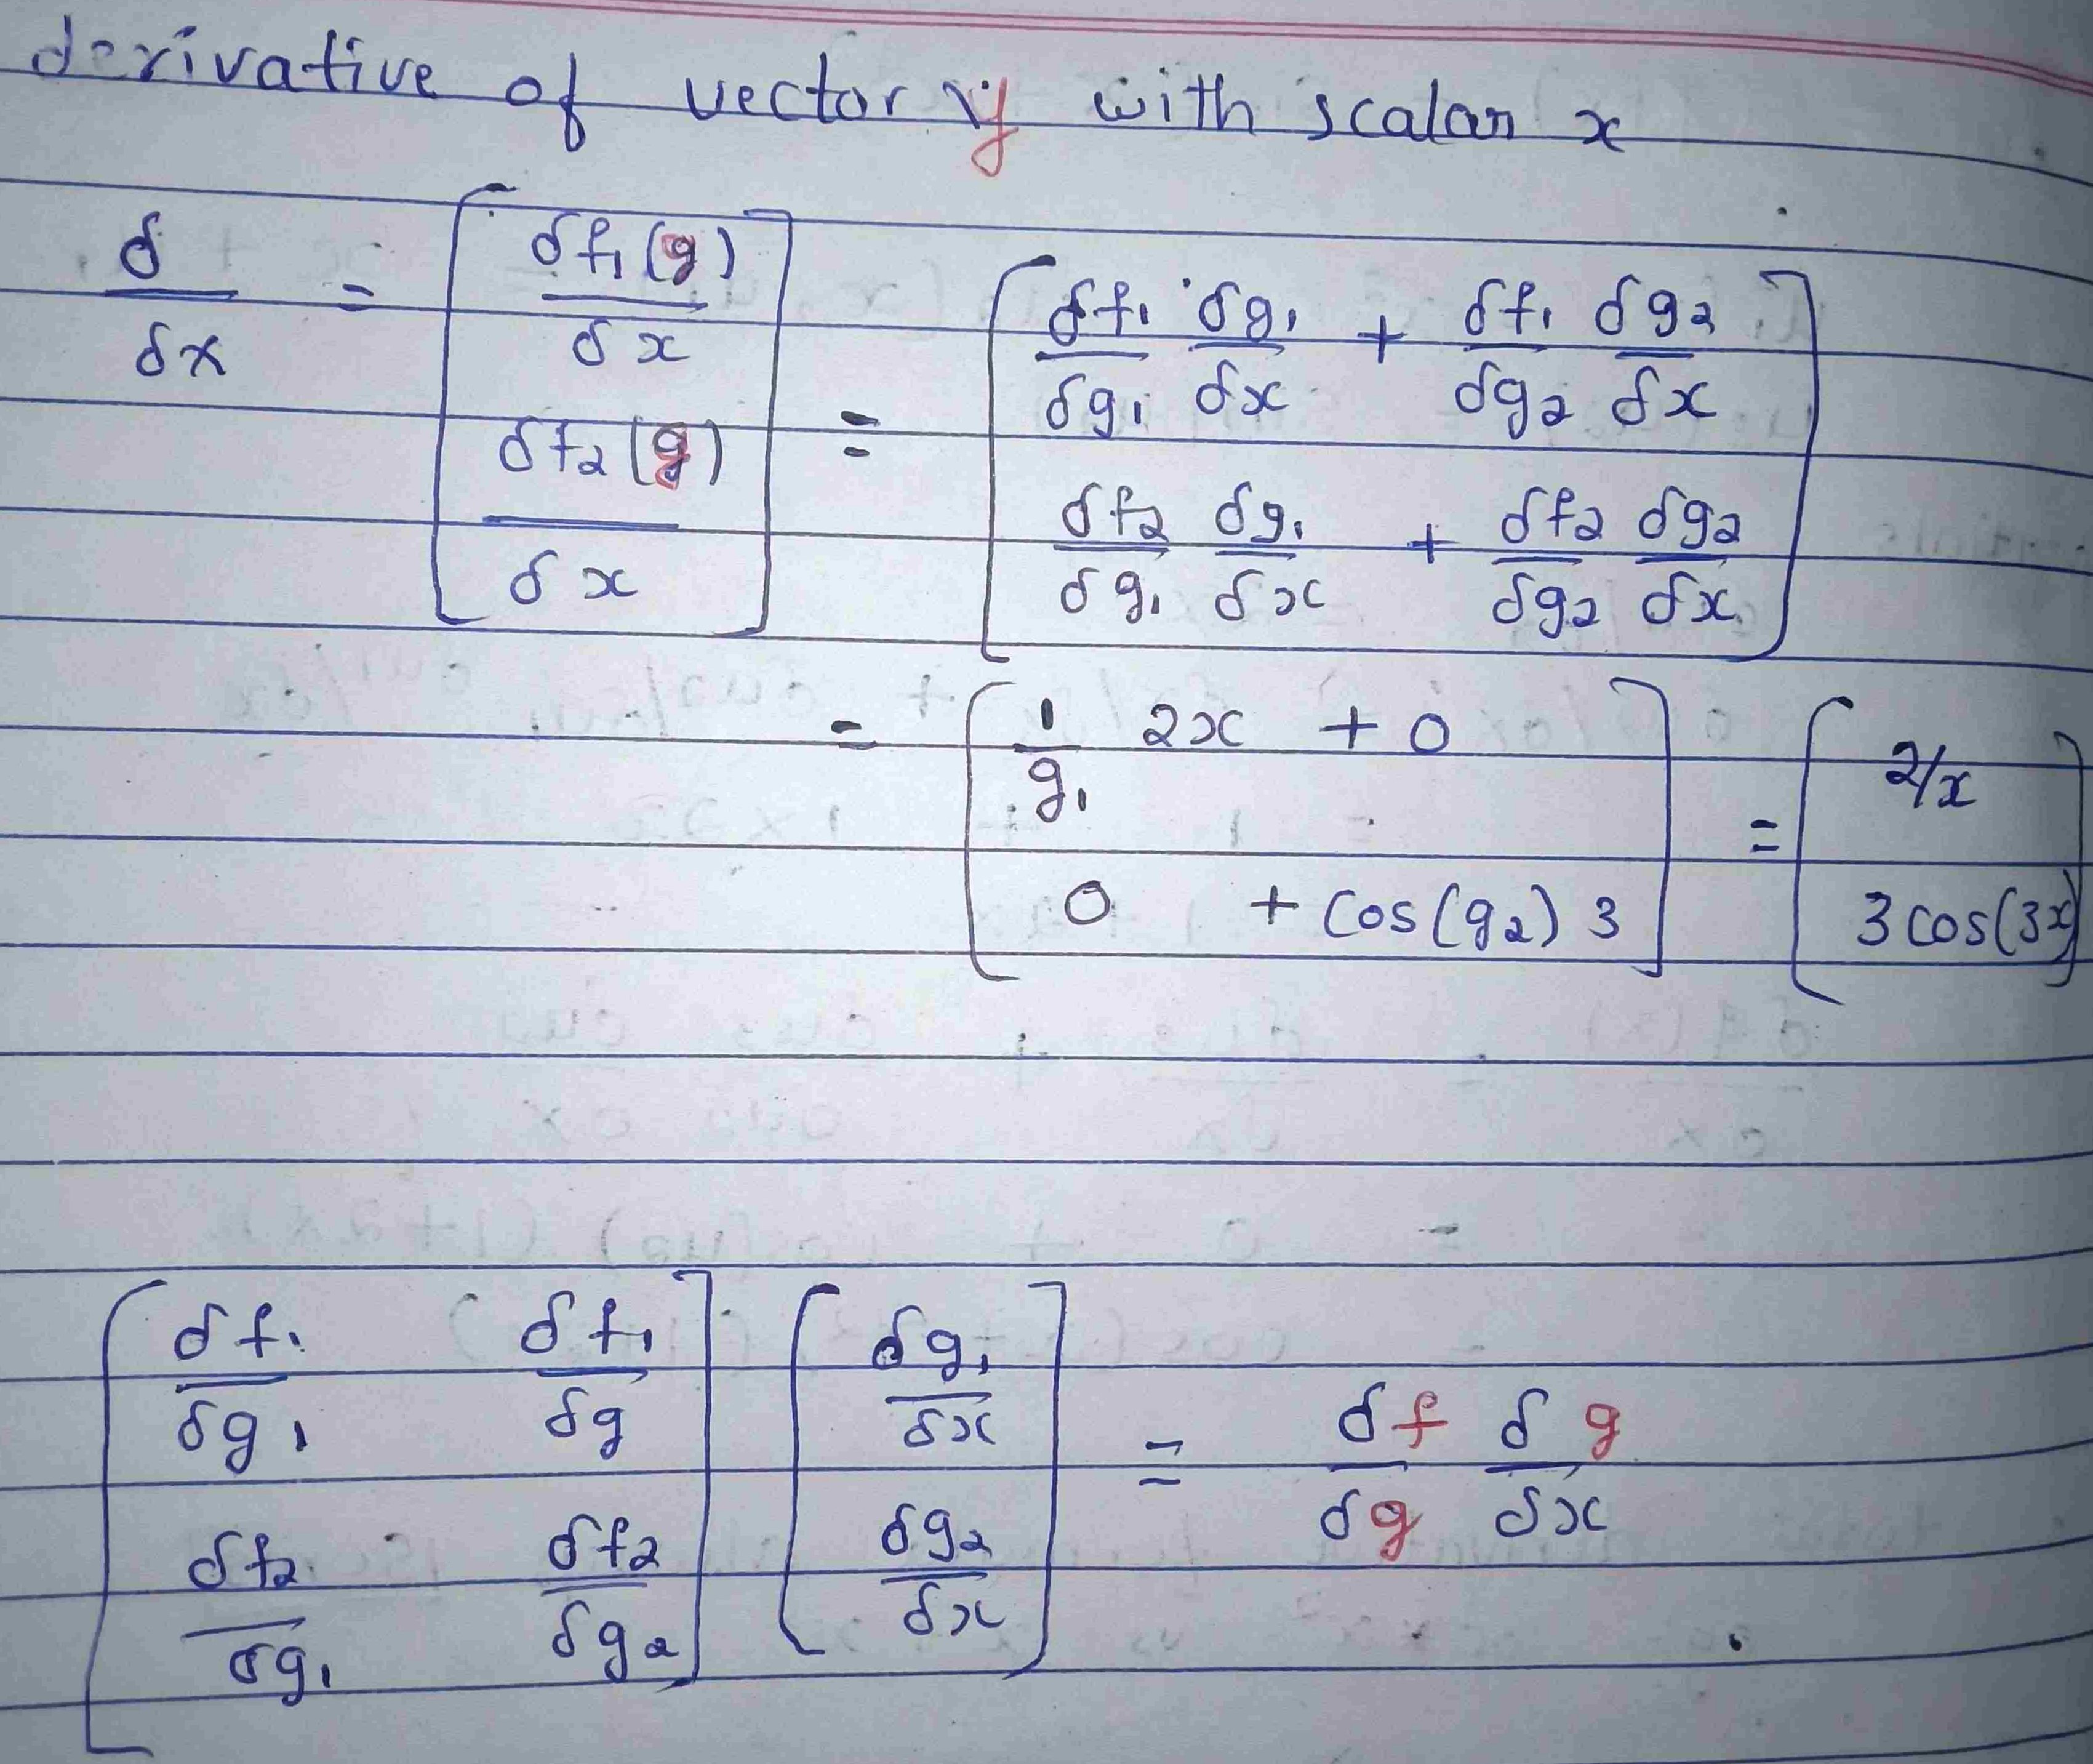 derivative of vector y with scalar x
δ/δx = [ δf₁(g)/δx ; δf₂(g)/δx ] = [ δf₁/δg₁ δg₁/δx + δf₁/δg₂ δg₂/δx ; δf₂/δg₁ δg₁/δx + δf₂/δg₂ δg₂/δx ]
= [ 1/g₁ 2x + 0 ; 0 + cos(g₂) 3 ] = [ 2/x ; 3 cos(3x) ]
[ δf₁/δg₁ δf₁/δg ; δf₂/δg₁ δf₂/δg₂ ] [ δg₁/δx ; δg₂/δx ] = δf/δg δg/δx